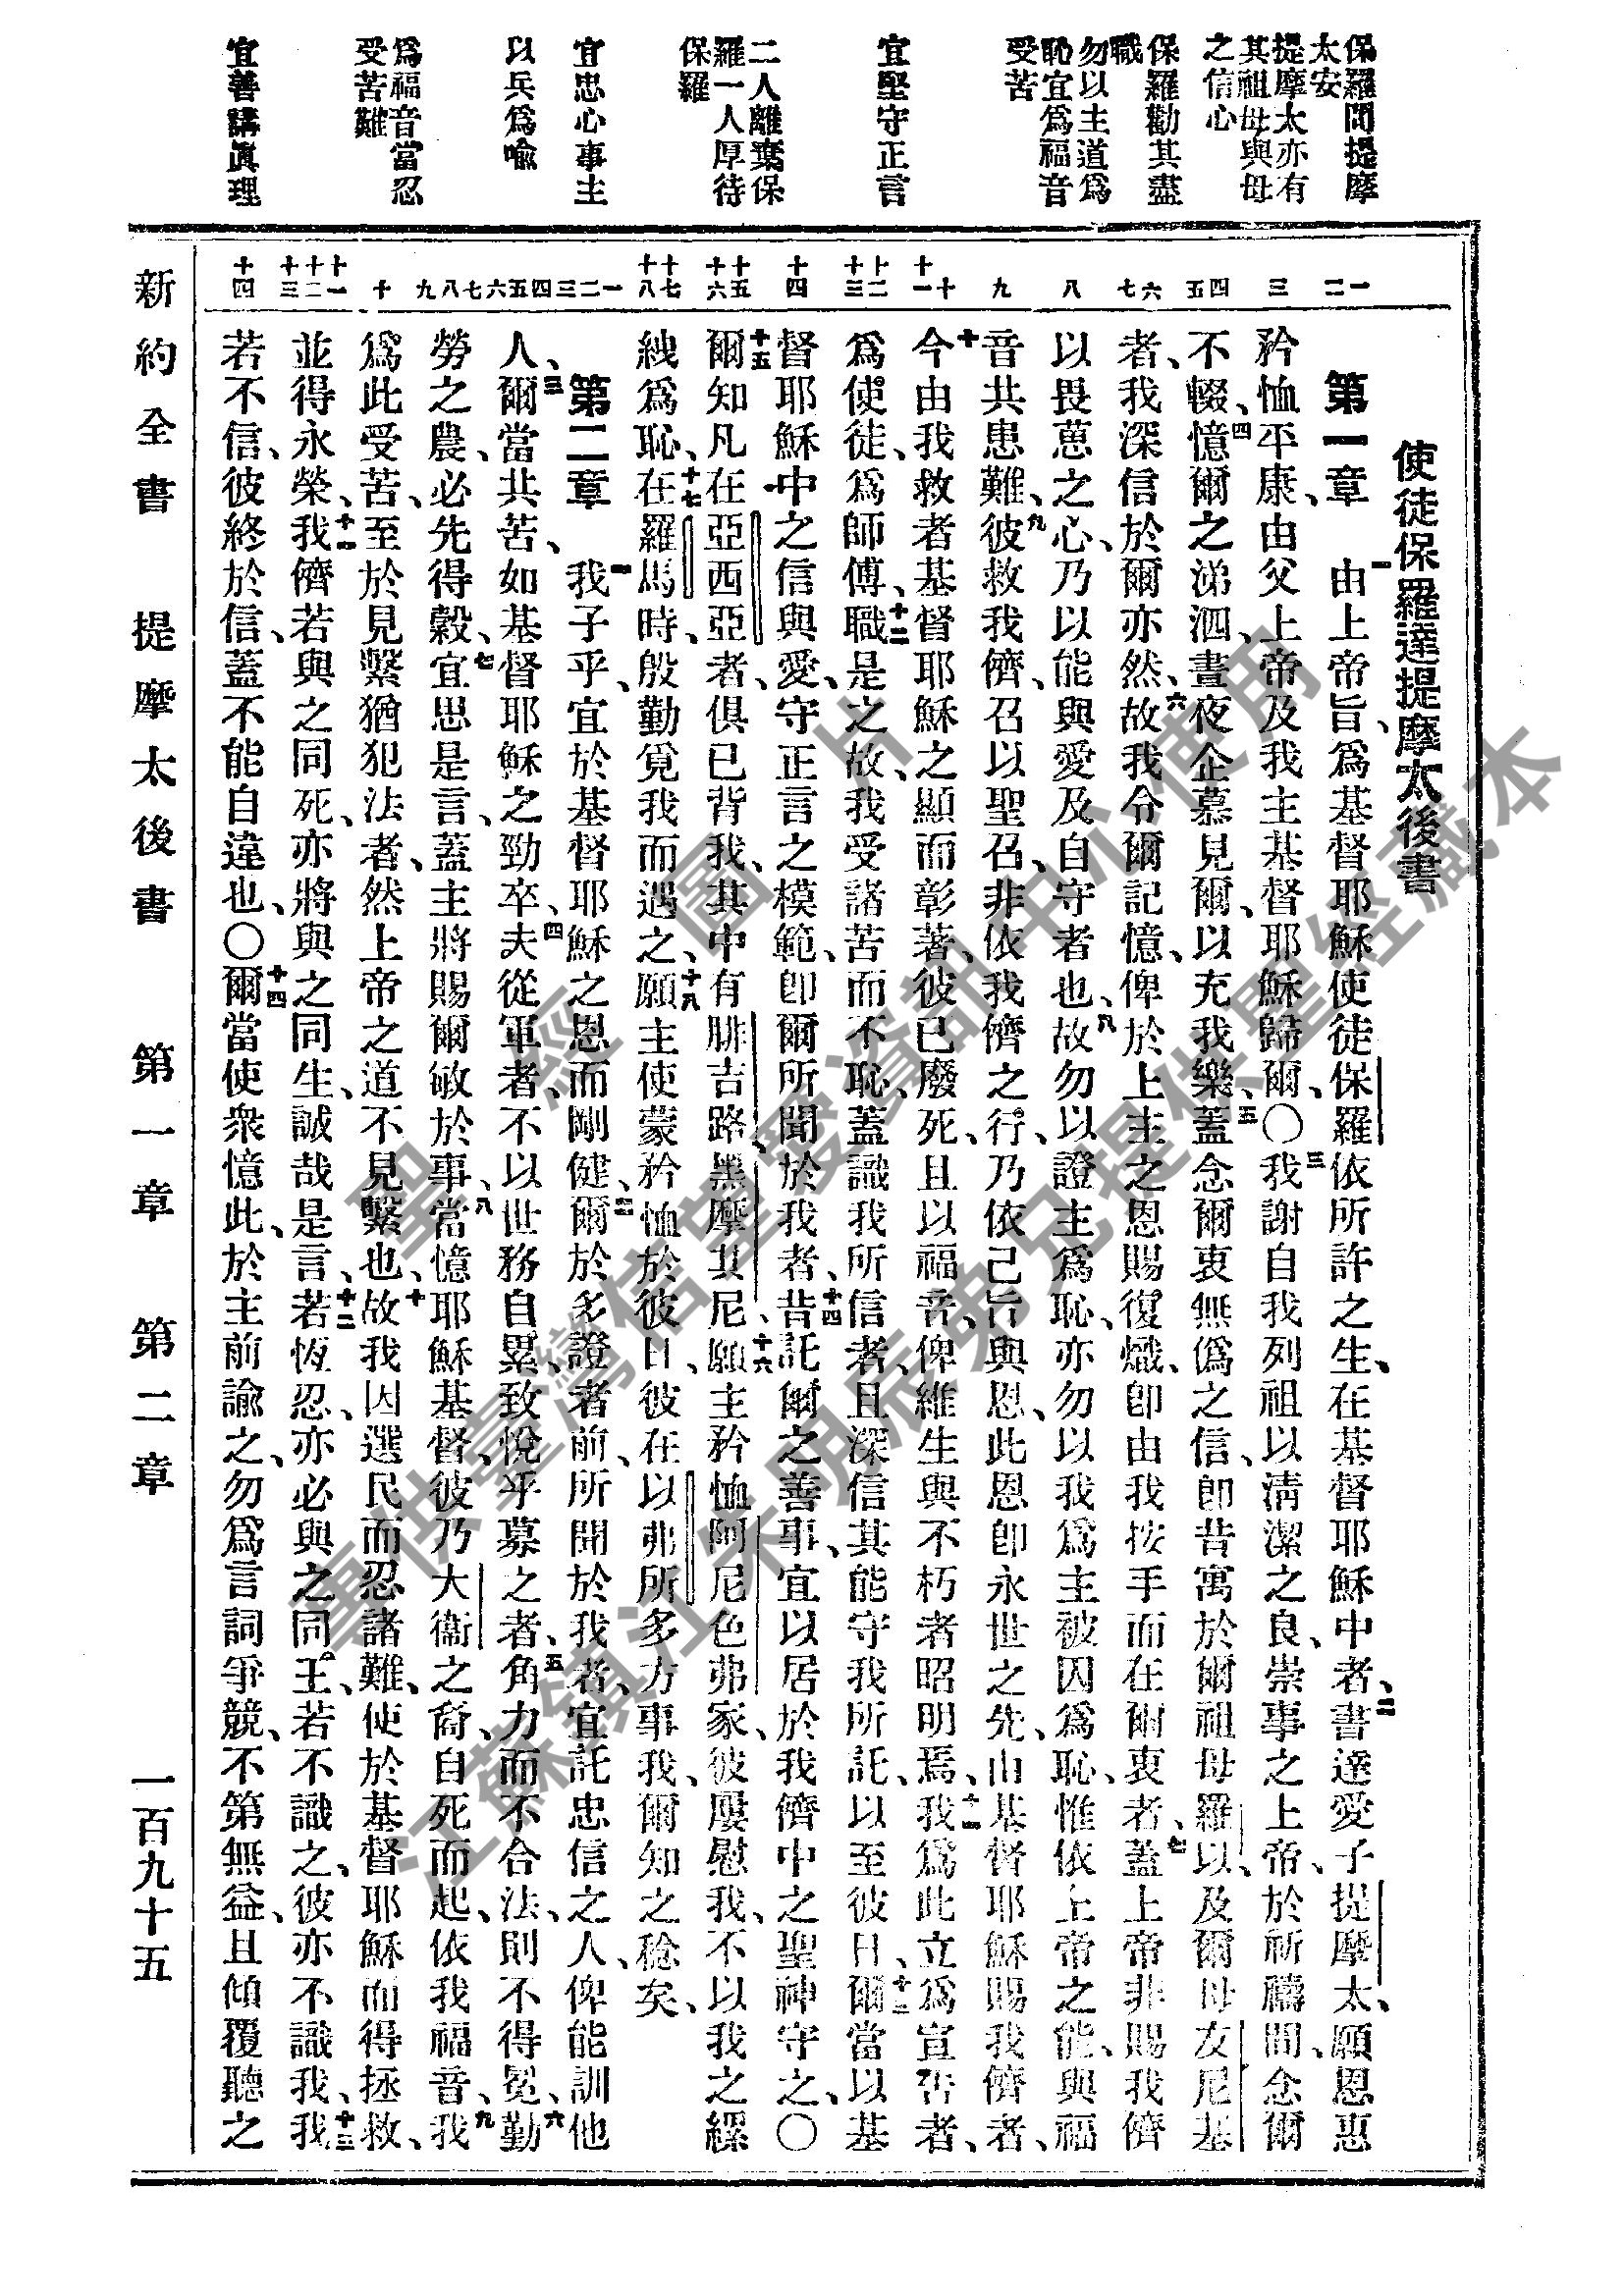 保羅問提摩
太安
提摩太亦有
其祖母與母
之信心
保羅勸其盡
職
勿以主道爲
恥宜爲福音
受苦
宜堅守正言
二人離棄保
羅一人厚待
保羅
宜忠心事主
以兵爲喩
爲福音當忍
受苦難
宜善講眞理
一二 三 四五 六七 八 九 十十一 十二十三 十四 十五十六 十七十八 一二三四五六七八九 十 十一十二十三 十四
使徒保羅達提摩太後書
第一章 一由上帝旨、爲基督耶穌使徒保羅依所許之生、在基督耶穌中者、二書達愛子提摩太、願恩惠
矜恤平康、由父上帝及我主基督耶穌歸爾、〇三我謝自我列祖以淸潔之良、崇事之上帝、於祈禱間、念爾
不輟、四憶爾之涕泗、晝夜企慕見爾、以充我樂、五蓋念爾衷無僞之信、卽昔寓於爾祖母羅以、及爾母友尼基
者、我深信於爾亦然、六故我令爾記憶、俾於上主之恩賜復熾、卽由我按手而在爾衷者、七蓋上帝非賜我儕
以畏葸之心、乃以能與愛及自守者也、八故勿以證主爲恥、亦勿以我爲主被囚爲恥、惟依上帝之能、與福
音共患難、九彼救我儕、召以聖召、非依我儕之行、乃依己旨與恩、此恩卽永世之先、由基督耶穌賜我儕者、
十今由我救者基督耶穌之顯而彰著、彼已廢死、且以福音、俾維生與不朽者昭明焉、十一我爲此立爲宣吿者、
爲使徒、爲師傅、職、十二是之故、我受諸苦而不恥、蓋識我所信者、且深信其能守我所託、以至彼日、十三爾當以基
督耶穌中之信與愛、守正言之模範、卽爾所聞於我者、十四昔託爾之善事、宜以居於我儕中之聖神守之、〇
十五爾知凡在亞西亞者、俱已背我、其中有腓吉路、黑摩其尼、十六願主矜恤阿尼色弗家、彼屢慰我、不以我之縲
絏爲恥、十七在羅馬時、殷勤覓我而遇之、十八願主使蒙矜恤於彼日、彼在以弗所多方事我、爾知之稔矣、
第二章 一我子乎、宜於基督耶穌之恩而剛健、二爾於多證者前、所聞於我者、宜託忠信之人、俾能訓他
人、三爾當共苦、如基督耶穌之勁卒、四夫從軍者、不以世務自累、致悅乎募之者、五角力而不合法、則不得冕、六勤
勞之農、必先得穀、七宜思是言、蓋主將賜爾敏於事、八當憶耶穌基督、彼乃大衞之裔、自死而起、依我福音、九我
爲此受苦、至於見繫猶犯法者、然上帝之道不見繫也、十故我因選民而忍諸難、使於基督耶穌而得拯救、
並得永榮、十一我儕若與之同死、亦將與之同生、誠哉是言、十二若恆忍、亦必與之同王、若不識之、彼亦不識我、十三我
若不信、彼終於信、蓋不能自違也、〇十四爾當使衆憶此、於主前諭之、勿爲言詞爭競、不第無益、且傾覆聽之
新約全書 提摩太後書 第一章 第二章 一百九十五
聖經圖片
專供臺灣信望愛資訊中心使用
江蘇鎮江朱明辰弟兄提供聖經藏本